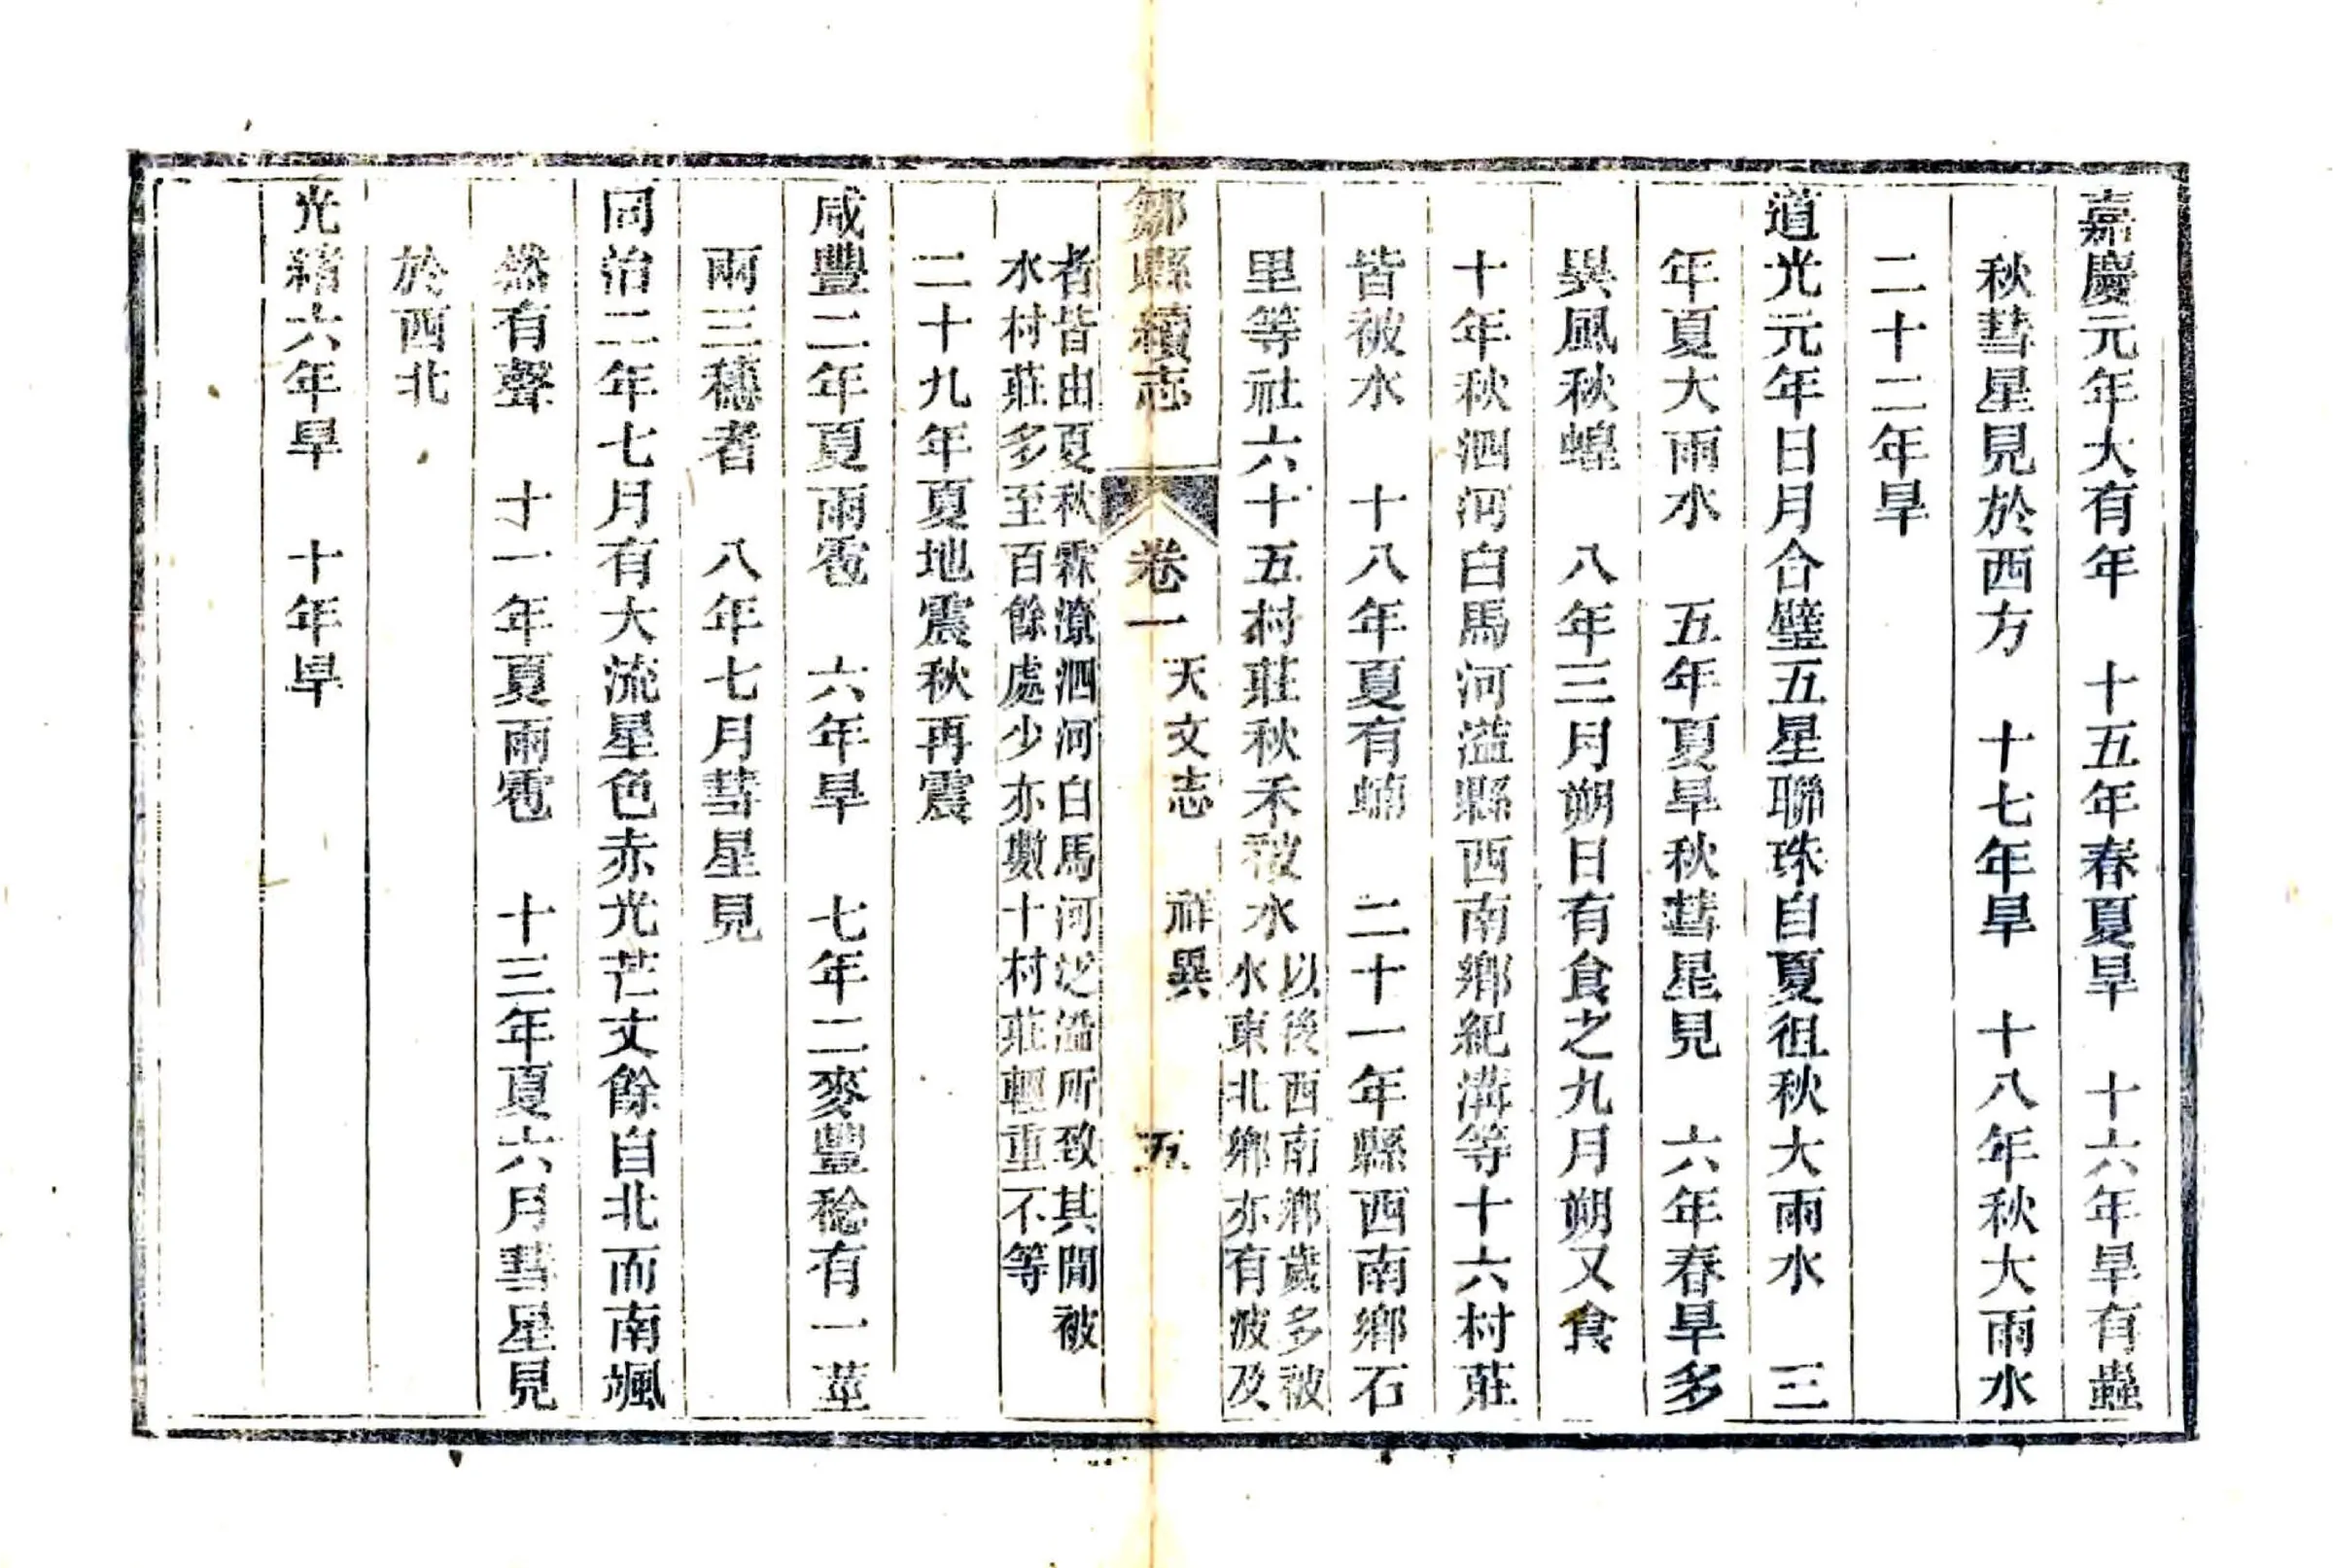 嘉慶元年大有年　十五年春夏旱　十六年旱有蟲
秋彗星見於西方　十七年旱　十八年秋大雨水
二十二年旱
道光元年日月合璧五星聯珠自夏徂秋大雨水　三
年夏大雨水　五年夏旱秋彗星見　六年春旱多
異風秋蝗　八年三月朔日有食之九月朔又食
十年秋泗河白馬河溢縣西南鄉紀溝等十六村莊
皆被水　十八年夏有蝻　二十一年縣西南鄉石
里等社六十五村莊秋禾被水
以後西南鄉歲多被
水東北鄉亦有波及
鄒縣續志　卷一　天文志　祥異　五
者皆由夏秋霖潦泗河白馬河泛溢所致其間被
水村莊多至百餘處少亦數十村莊輕重不等
二十九年夏地震秋再震
咸豐二年夏雨雹　六年旱　七年二麥豐稔有一莖
兩三穗者　八年七月彗星見
同治二年七月有大流星色赤光芒丈餘自北而南颯
然有聲　十一年夏雨雹　十三年夏六月彗星見
於西北
光緒六年旱　十年旱